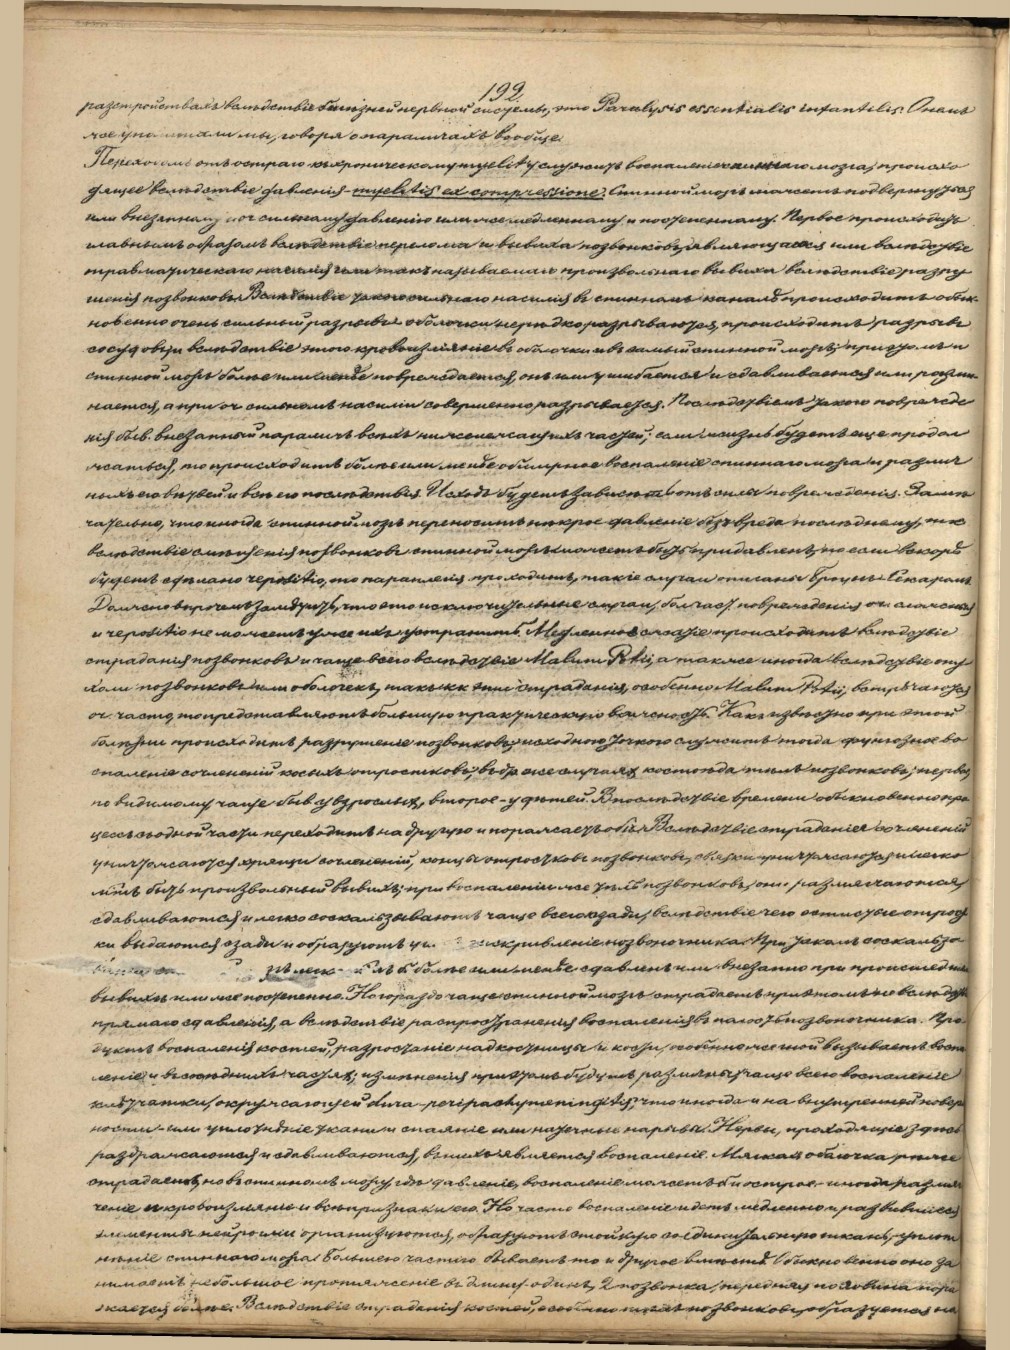 192
разстройствахъ вслѣдствіе болѣзней нервной системы, это Paralysis essentialis infantilis. О немъ
уже упоминали мы, говоря о параличахъ вообще.
Переходомъ отъ остраго къ хроническому myelit'у служитъ воспаленіе спиннаго мозга, происхо
дящее вслѣдствіе давленія – myelitis ex compressione. Спинной мозгъ можетъ подвергнуться
или внезапному и оч. сильному давленію или же медленному и постепенному. Первое происходитъ
главнымъ образомъ вслѣдствіе перелома и вывиха позвонковъ, являющагося или вслѣдствіе
травматическаго насилія или такъ называемаго произвольнаго вывиха вслѣдствіе разру
шенія позвонковъ. Вслѣдствіе такого сильнаго насилія въ спинномъ каналѣ происходитъ обык-
новенно очень сильный разрывъ оболочки нерѣдко разрываются, происходитъ разрывъ
сосудовъ, и вслѣдствіе этого кровоизліяніе въ оболочки и въ самый спинной мозгъ; при этомъ и
спинной мозгъ болѣе или менѣе повреждается, онъ или ушибается и сдавливается или размин-
нается, а при оч. сильномъ насиліи совершенно разрывается. Послѣдствіемъ такого поврежде
нія быв. внезапный параличъ всѣхъ нижележащихъ частей; если жизнь будетъ еще продол
жаться, то происходитъ болѣе или менѣе обширное воспаленіе спиннаго мозга и различ
ныхъ его вѣтвей и всѣ его послѣдствія. Исходъ будетъ зависѣть отъ силы поврежденія. Замѣ
чательно, что иногда спинной мозгъ переноситъ давленіе безъ вреда послѣднему, т. к.
вслѣдствіе смѣщенія позвонковъ спинной мозгъ можетъ быть придавленъ, но если вскорѣ
будетъ сдѣлано repositio, то параплегія проходитъ, такіе случаи описаны Броунъ-Секаромъ.
Должно впрочемъ замѣтить, что это исключительные случаи, бол. част. поврежденія оч. сложны
и repositio не можетъ уже ихъ устранить. Медленное сжатіе происходитъ вслѣдствіе
страданія позвонковъ и чаще всего вслѣдствіе Malum Potii, а также иногда вслѣдствіе опу
холи позвонковъ или оболочекъ, такъ какъ эти страданія, особенно Malum Potii, встрѣчаются
оч. часто, то представляютъ большую практическую важность. Какъ извѣстно при этой
болѣзни происходитъ разрушеніе позвонковъ; исходною точкою служитъ тогда фунгозное во
спаленіе сочлененій косыхъ отростковъ, въ др. же случаяхъ костоѣда тѣлъ позвонковъ; первое
по видимому чаще быв. у взрослыхъ, второе – у дѣтей. Впослѣдствіе времени обыкновенно про
цессъ съ одной части переходитъ на другую и поражаетъ обѣ. Вслѣдствіе страданія сочлененій
уничтожаются хрящи сочлененій, концы отростковъ позвонковъ, связки уничтожаются и легко
м. быть произвольный вывихъ; при воспаленіи же тѣлъ позвонковъ, они размягчаются,
сдавливаются и легко соскальзываютъ чаще всего сзади, вслѣдствіе чего остистые отрост
ки выдаются сзади и образуютъ искривленіе позвоночника. При такомъ соскальзы
болѣе или менѣе сдавленъ или внезапно при происшедшемъ
вывихѣ или же постепенно. Но гораздо чаще спинной мозгъ страдаетъ при этомъ не вслѣдств.
прямаго сдавленія, а вслѣдствіе распространенія воспаленія въ полость позвоночника. Про-
дуктъ воспаленія костей, разростаніе надкостницы и кости, особенно же гной вызываетъ воспа
леніе и въ сосѣднихъ частяхъ; измѣненія при этомъ будутъ различны, чаще всего воспаленіе
клѣтчатки, окружающей dura – peripachymeningitis, что иногда и на внутренней повер
хности или уплотнѣніе ткани и спаяніе или нажечные нарывы. Нервы, проходящіе здѣсь
раздражаются и сдавливаются, въ нихъ является воспаленіе. Мягкая оболочка рѣже
страдаетъ, но въ спинномъ мозгу, гдѣ давленіе, воспаленіе можетъ б. и острое – иногда размяг
ченіе и кровоизліяніе и всѣ признаки его. Но часто воспаленіе идетъ медленно и развившіеся
элементы нейрогліи организуются, образуютъ этой соединительную ткань, уплот
нѣніе спиннаго мозга. Большею частію бываетъ то и другое вмѣстѣ. Обыкновенно оно за
нимаетъ небольшое протяженіе въ длину – одинъ, 2 позвонка, передняя половина пора
жается болѣе. Вслѣдствіе страданія костей, особенно тѣлъ позвонковъ, образуется на